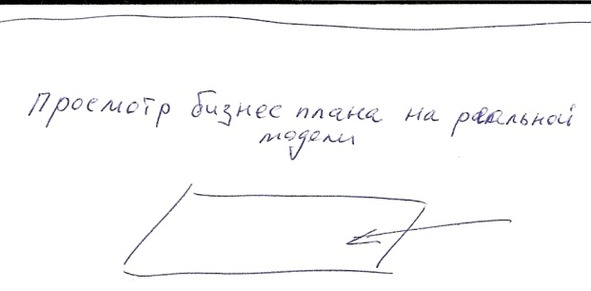 Просмотр бизнес плана на реальной
модели